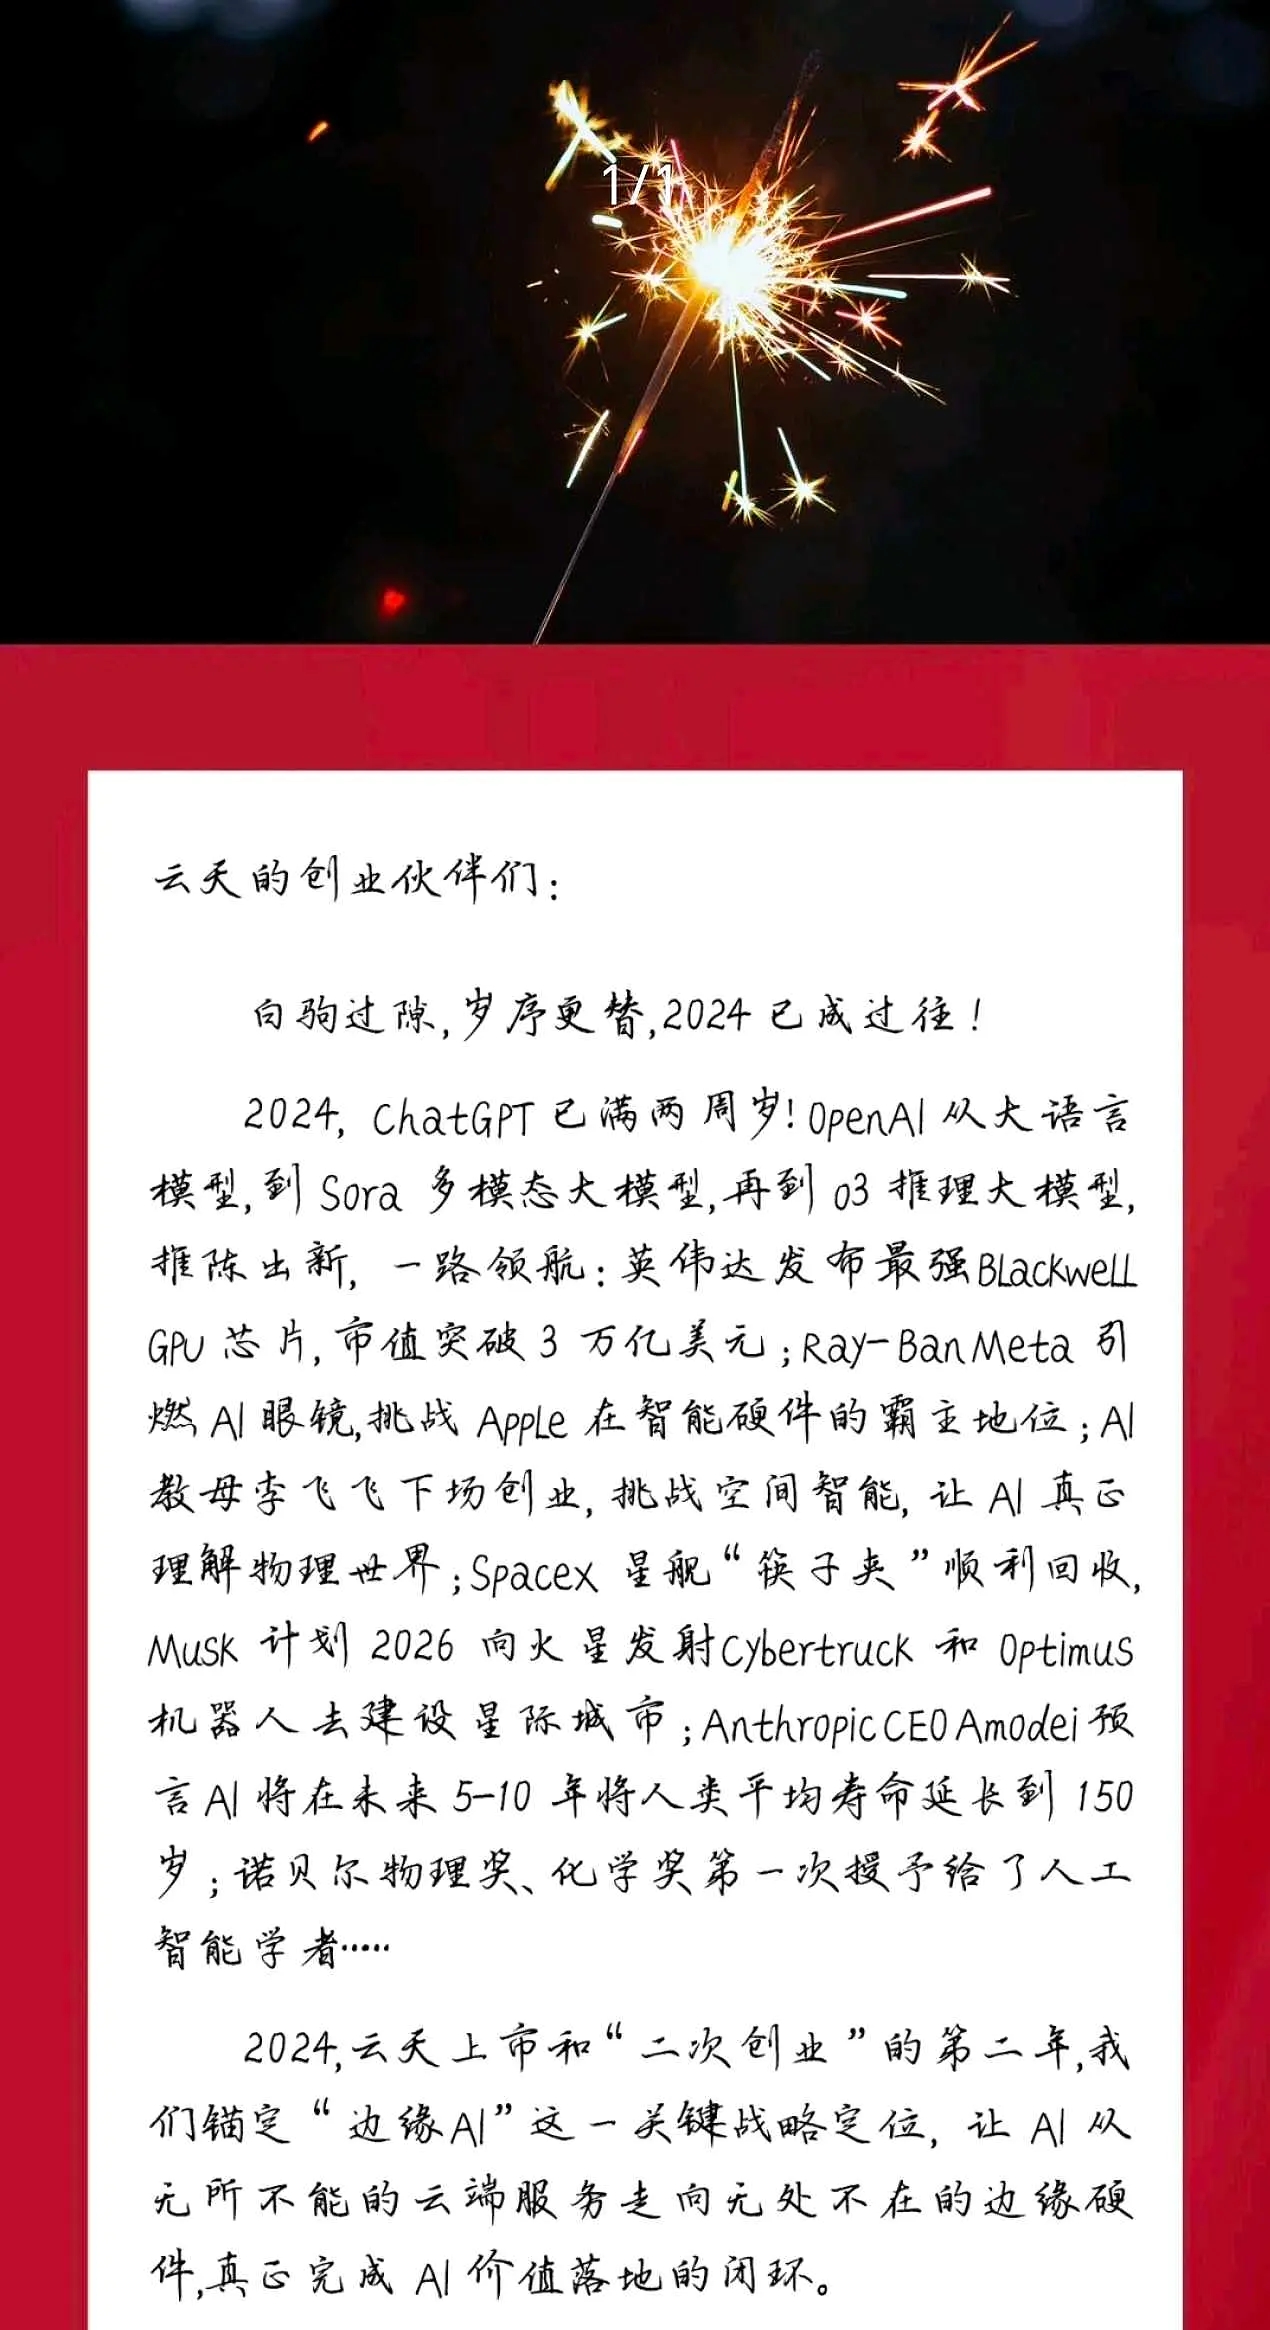 1/1
云天的创业伙伴们：
白驹过隙,岁序更替,2024已成过往！
2024, ChatGPT已满两周岁！OpenAI从大语言
模型,到Sora多模态大模型,再到o3推理大模型,
推陈出新,一路领航：英伟达发布最强Blackwell
GPU芯片,市值突破3万亿美元；Ray-Ban Meta引
燃AI眼镜,挑战Apple在智能硬件的霸主地位；AI
教母李飞飞下场创业,挑战空间智能,让AI真正
理解物理世界；Spacex星舰“筷子夹”顺利回收,
Musk计划2026向火星发射Cybertruck和Optimus
机器人去建设星际城市；Anthropic CEO Amodei预
言AI将在未来5-10年将人类平均寿命延长到150
岁；诺贝尔物理奖、化学奖第一次授予给了人工
智能学者……
2024,云天上市和“二次创业”的第二年,我
们锚定“边缘AI”这一关键战略定位,让AI从
无所不能的云端服务走向无处不在的边缘硬
件,真正完成AI价值落地的闭环。